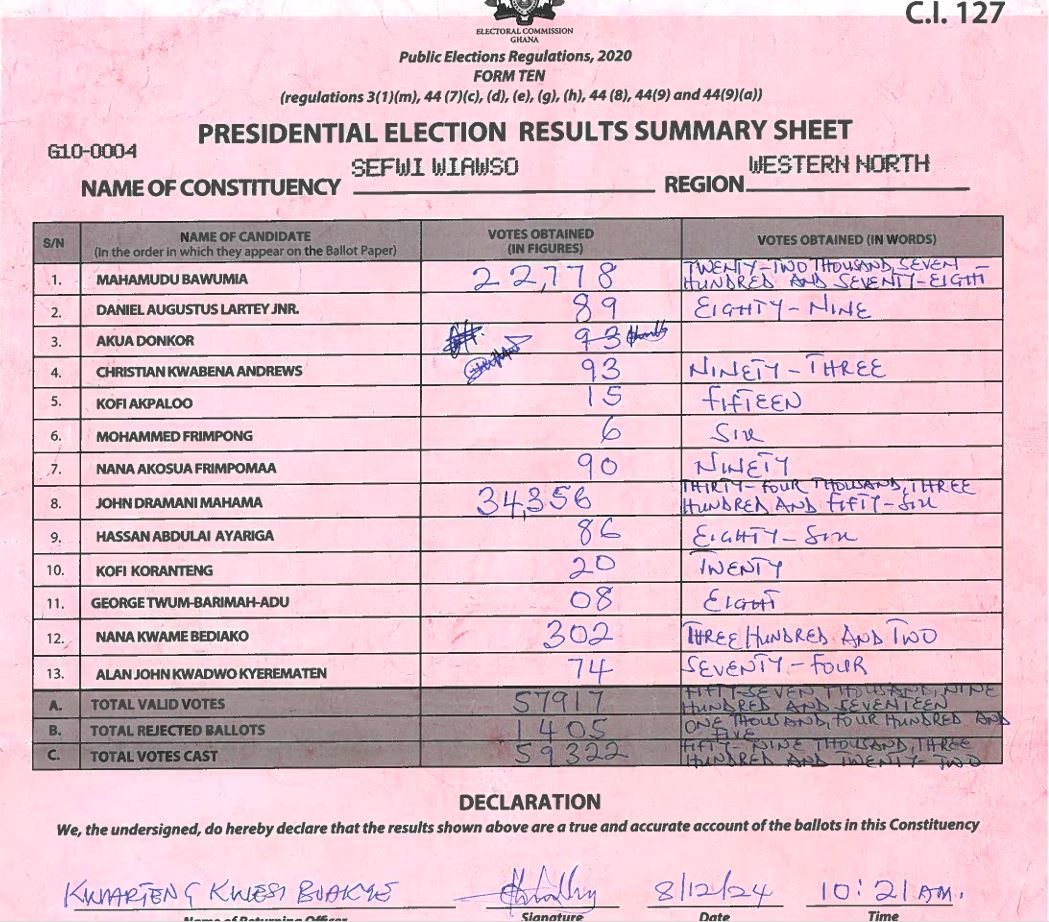 C.I. 127
ELECTORAL COMMISSION
GHANA
Public Elections Regulations, 2020
FORM TEN
(regulations 3(1)(m), 44 (7)(c), (d), (e), (g), (h), 44 (8), 44(9) and 44(9)(a))
PRESIDENTIAL ELECTION RESULTS SUMMARY SHEET
G10-0004
NAME OF CONSTITUENCY SEFWI WIAWSO REGION WESTERN NORTH
S/N NAME OF CANDIDATE (In the order in which they appear on the Ballot Paper) VOTES OBTAINED (IN FIGURES) VOTES OBTAINED (IN WORDS)
1. MAHAMUDU BAWUMIA 22,778 TWENTY-TWO THOUSAND, SEVEN-
HUNDRED AND SEVENTY-EIGHT
2. DANIEL AUGUSTUS LARTEY JNR. 89 EIGHTY-NINE
3. AKUA DONKOR 93
4. CHRISTIAN KWABENA ANDREWS 93 NINETY-THREE
5. KOFI AKPALOO 15 FIFTEEN
6. MOHAMMED FRIMPONG 6 SIX
7. NANA AKOSUA FRIMPOMAA 90 NINETY
8. JOHN DRAMANI MAHAMA 34,356 THIRTY-FOUR THOUSAND, THREE
HUNDRED AND FIFTY-SIX
9. HASSAN ABDULAI AYARIGA 86 EIGHTY-SIX
10. KOFI KORANTENG 20 TWENTY
11. GEORGE TWUM-BARIMAH-ADU 08 EIGHT
12. NANA KWAME BEDIAKO 302 THREE HUNDRED AND TWO
13. ALAN JOHN KWADWO KYEREMATEN 74 SEVENTY-FOUR
A. TOTAL VALID VOTES 57917 FIFTY-SEVEN THOUSAND, NINE
HUNDRED AND SEVENTEEN
B. TOTAL REJECTED BALLOTS 1405 ONE THOUSAND, FOUR HUNDRED AND
FIVE
C. TOTAL VOTES CAST 59322 FIFTY-NINE THOUSAND, THREE
HUNDRED AND TWENTY-TWO
DECLARATION
We, the undersigned, do hereby declare that the results shown above are a true and accurate account of the ballots in this Constituency
KWARTENG KWESI BOAKYE 8/12/24 10:21 AM.
Name of Returning Officer Signature Date Time